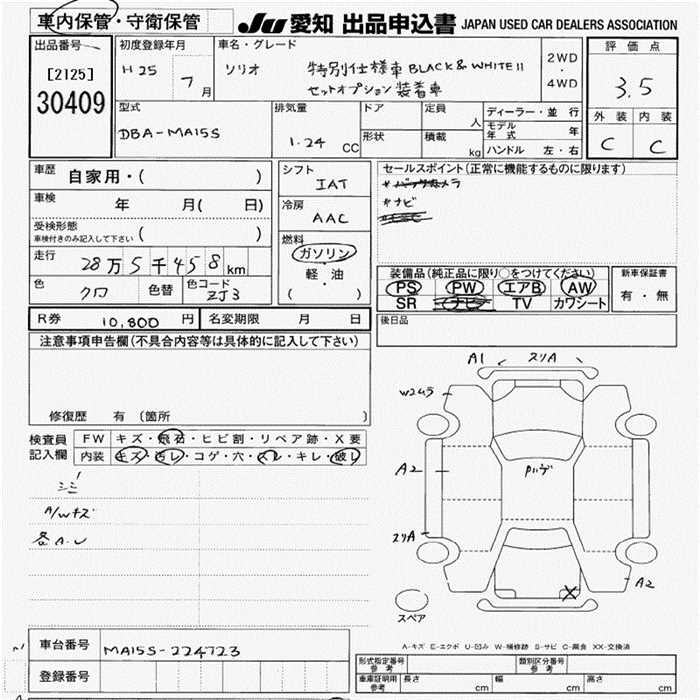 車内保管・守衛保管
JU 愛知 出品申込書 JAPAN USED CAR DEALERS ASSOCIATION
出品番号
[2125]
30409
初度登録年月
H25 7月
車名・グレード
ソリオ 特別仕様車 BLACK & WHITE II
セットオプション装着車
2WD
・
4WD
評価点
3.5
外装 内装
C C
型式
DBA-MA15S
排気量
1.24 CC
ドア
形状
定員 人
積載 kg
ディーラー・並行
モデル年式 年
ハンドル 左・右
車歴 自家用・( )
車検 年 月( 日)
受検形態
車検付きのみ記入して下さい ( )
走行 28万5千458km
色 クロ 色替 色コード ZJ3
シフト
IAT
冷房
AAC
燃料
ガソリン
軽・油
( )
セールスポイント(正常に機能するものに限ります)
*ナビ
装備品(純正品に限り○をつけてください)
PS PW エアB AW
SR ナビ TV カワシート
新車保証書
有・無
R券 10,800円 名変期限 月 日
後日品
注意事項申告欄(不具合内容等は具体的に記入して下さい)
修復歴 有(箇所 )
検査員記入欄
FW キズ・飛石・ヒビ割・リペア跡・X要
内装 キズ・汚レ・コゲ・穴・スレ・キレ・破レ
シミ
A/Wキズ
各A.U
A1 スリA
A2
スリA
A2
X
スペア
A-キズ E-エクボ U-凹み W-補修跡 S-サビ C-腐食 XX-交換済
車台番号 MA15S-224723
登録番号
形式指定番号 参考
類別区分番号 参考
車庫証明用 参考 長さ cm 幅 cm 高さ cm